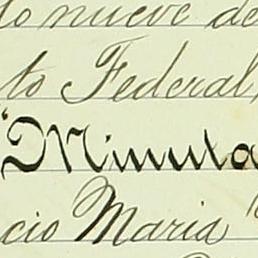 to nueve de
to Federal,
"Minula
cio Maria